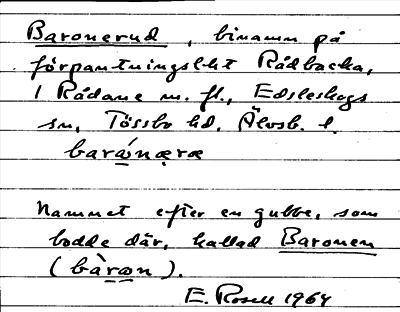 Baronerud, binamn på
förpantningslht Rådbacka,
1 Rådane m. fl., Edsleskogs
sn, Tössbo hd, Älvsb. l.
barónæræ
Namnet efter en gubbe, som
bodde där, kallad Baronen
(bàrøn).
E. Rosell 1964